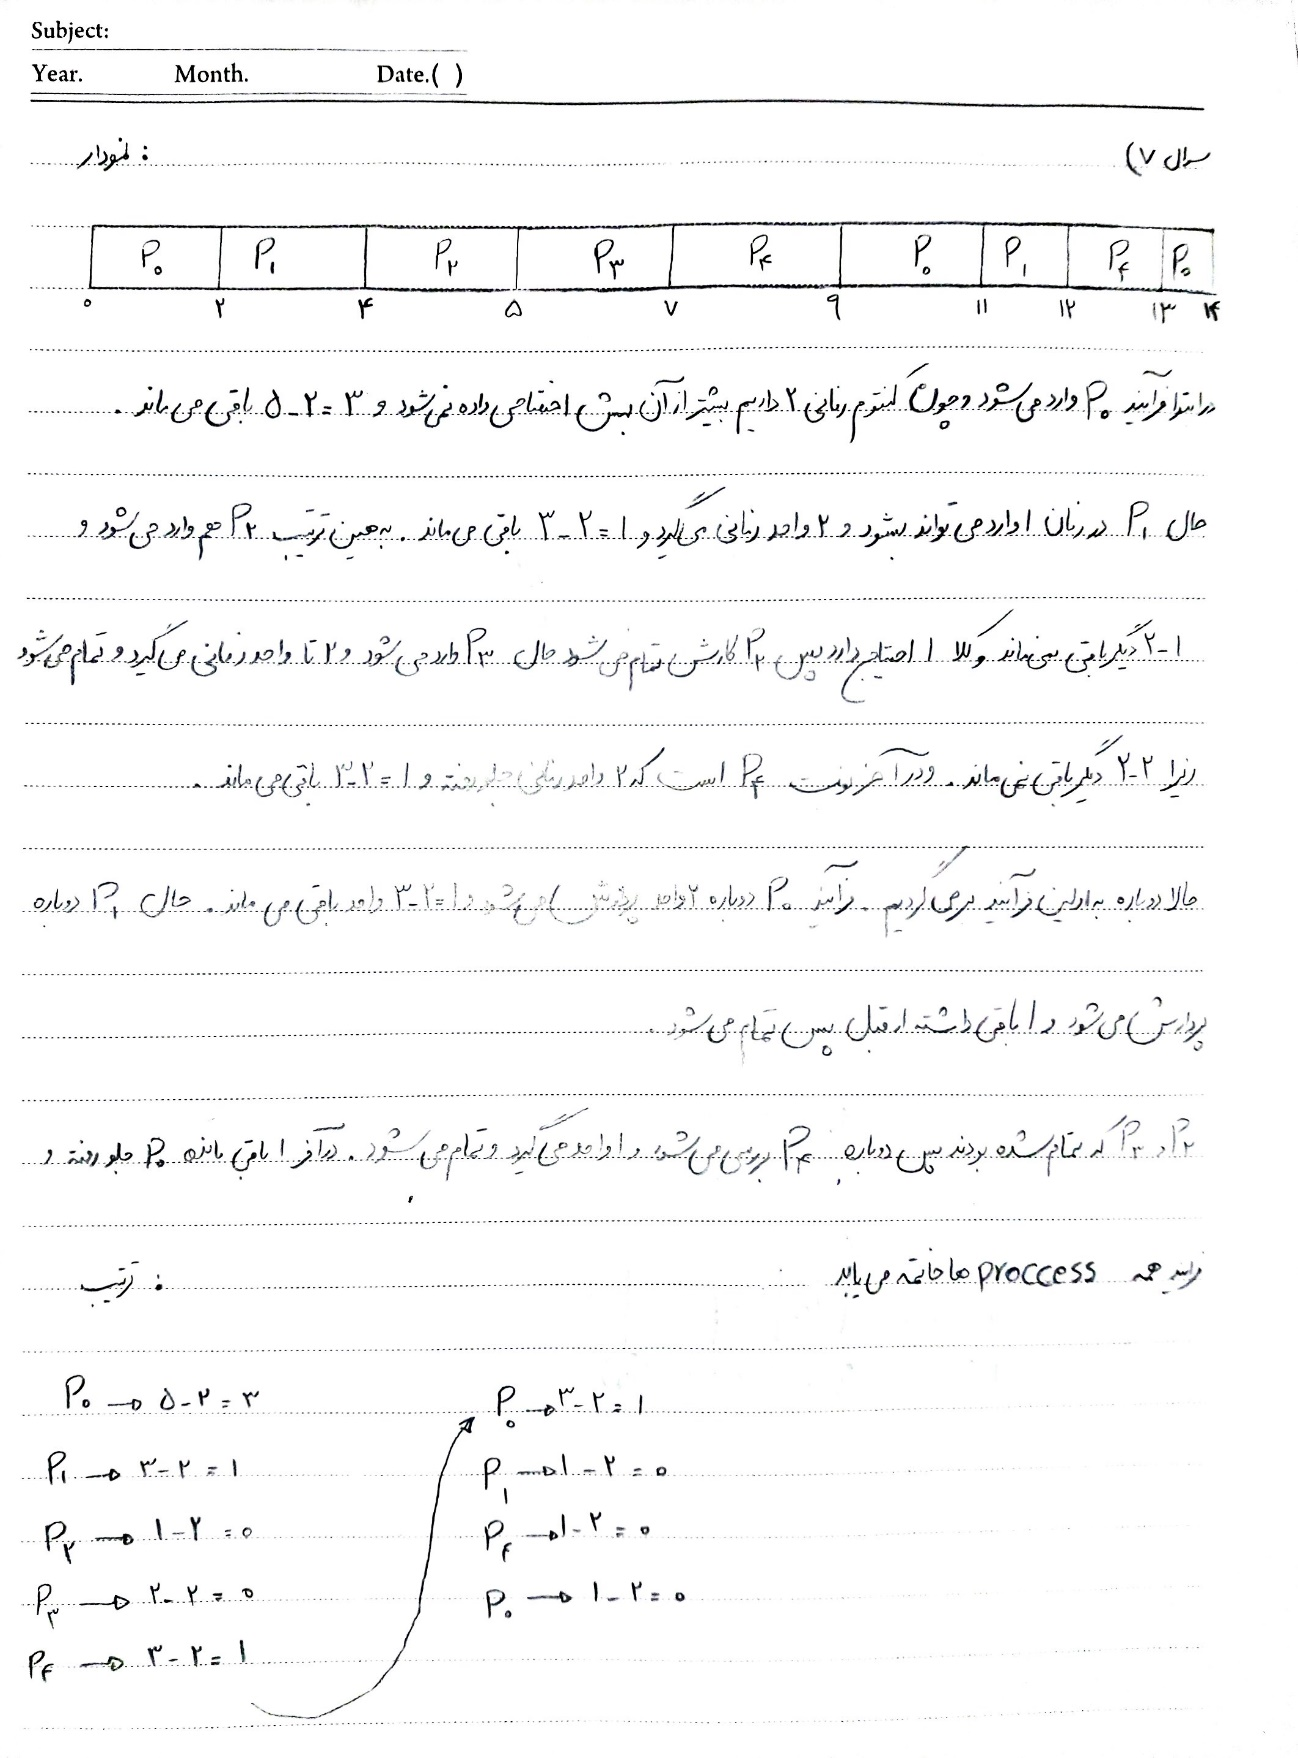 Subject:
Year. Month. Date.( )
سوال ۷) نمودار :
P₀ P₁ P₂ P₃ P₄ P₀ P₁ P₄ P₀
۰ ۲ ۴ ۵ ۷ ۹ ۱۱ ۱۲ ۱۳ ۱۴
در ابتدا فرآیند P₀ وارد می‌شود و چون کنتوم زمانی ۲ داریم بیشتر از آن بهش اختصاص داده نمی‌شود و ۳ = ۲ - ۵ باقی می‌ماند .
حال P₁ در زمان ۱ وارد می تواند بشود و ۲ واحد زمانی می‌گیرد و ۱ = ۲ - ۳ باقی می‌ماند . به همین ترتیب P₂ هم وارد می‌شود و
۱-۲ دیگر باقی نمی‌ماند و کلا ۱ احتیاج دارد پس P₂ کارش تمام می‌شود حال P₃ وارد می‌شود و ۲ تا واحد زمانی می‌گیرد و تمام می‌شود
زیرا ۲-۲ دیگر باقی نمی‌ماند . و در آخر نوبت P₄ است که ۲ واحد زمانی جلو رفته و ۱ = ۲-۳ باقی می‌ماند .
حالا دوباره به اولین فرآیند برمی‌گردیم . فرآیند P₀ دوباره ۲ واحد پردازش می‌شود و ۱ = ۲-۳ واحد باقی می ماند . حال P₁ دوباره
پردازش می‌شود و ۱ باقی داشته از قبل پس تمام می‌شود .
P₂ و P₃ که تمام شده بودند پس دوباره P₄ بررسی می‌شود و ۱ واحد می‌گیرد و تمام می‌شود . در آخر ۱ باقی مانده P₀ جلو رفته و
همه proccess ها خاتمه می یابد ترتیب :
P₀ → ۵-۲ = ۳
P₁ → ۳-۲ = ۱
P₂ → ۱-۲ = ۰
P₃ → ۲-۲ = ۰
P₄ → ۳-۲ = ۱
P₀ → ۳-۲ = ۱
P₁ → ۱-۲ = ۰
P₄ → ۱-۲ = ۰
P₀ → ۱-۲ = ۰